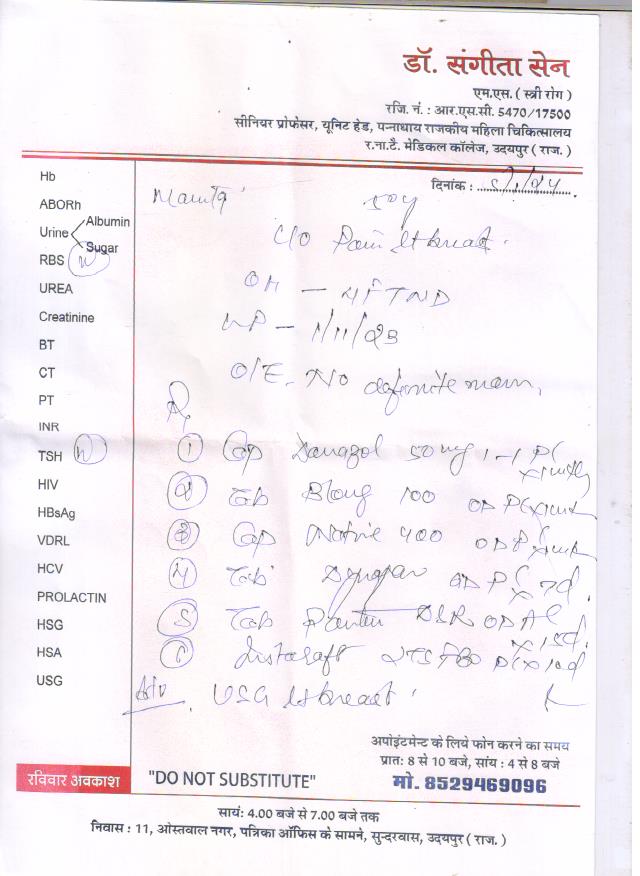 डॉ. संगीता सेन
एम.एस. ( स्त्री रोग )
रजि. नं. : आर.एस.सी. 5470/17500
सीनियर प्रोफेसर, यूनिट हेड, पन्नाधाय राजकीय महिला चिकित्सालय
र.ना.टै. मेडिकल कॉलेज, उदयपुर ( राज. )
दिनांक :
Hb
ABORh
Urine Albumin
Sugar
RBS N
UREA
Creatinine
BT
CT
PT
INR
TSH N
HIV
HBsAg
VDRL
HCV
PROLACTIN
HSG
HSA
USG
C/O Pain breast.
OH – FTND
– 1/11/23
O/E - No definite
① Cap Danazol 50mg 1-1 PC
② Tab 100 OD PC
③ Cap 400 OD
④ Tab OD PC x 7d.
⑤ Tab DSR OD x 15d.
⑥ PC x 10d
Adv. USG breast.
अपोइंटमेन्ट के लिये फोन करने का समय
प्रातः 8 से 10 बजे, सांय : 4 से 8 बजे
मो. 8529469096
रविवार अवकाश
"DO NOT SUBSTITUTE"
सायं: 4.00 बजे से 7.00 बजे तक
निवास : 11, ओस्तवाल नगर, पत्रिका ऑफिस के सामने, सुन्दरवास, उदयपुर ( राज. )